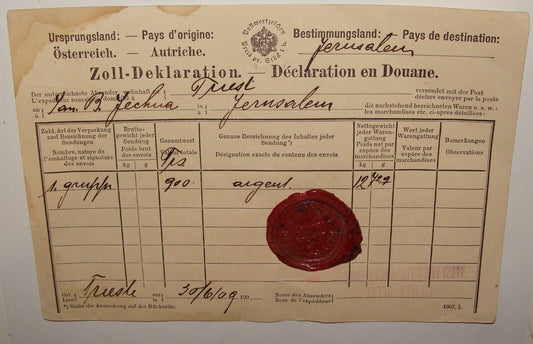 Ursprungsland: — Pays d'origine:
Österreich. — Autriche.
Postwertzeichen
Bestimmungsland: — Pays de destination:
Jerusalem
Zoll-Deklaration. — Déclaration en Douane.
Der unterzeichnete Absender, wohnhaft
L'expéditeur soussigné demeurant
in
à
Triest
versendet mit der Post
déclare envoyer par la poste
an
à
Jechua
in
à
Jerusalem
die nachstehend bezeichneten Waren u. s. w.:
les marchandises etc. ci-après détaillées:
Zahl, Art der Verpackung und Bezeichnung der Sendungen
Nombre, nature de l'emballage et signature des envois
Brutto-gewicht jeder Sendung
Poids brut des envois
kg g
Gesamtwert
Valeur totale
Genaue Bezeichnung des Inhaltes jeder Sendung *)
Désignation exacte du contenu des envois
Nettogewicht jeder Warengattung
Poids net par espèce des marchandises
kg g
Wert jeder Warengattung
Valeur par espèce des marchandises
Bemerkungen
Observations
1 gruppo
900
argent
Ort
Lieu
Trieste
am
le
30/6/09
190
Name des Absenders
Nom de l'expéditeur
*) Siehe die Anmerkung auf der Rückseite.
1907. I.